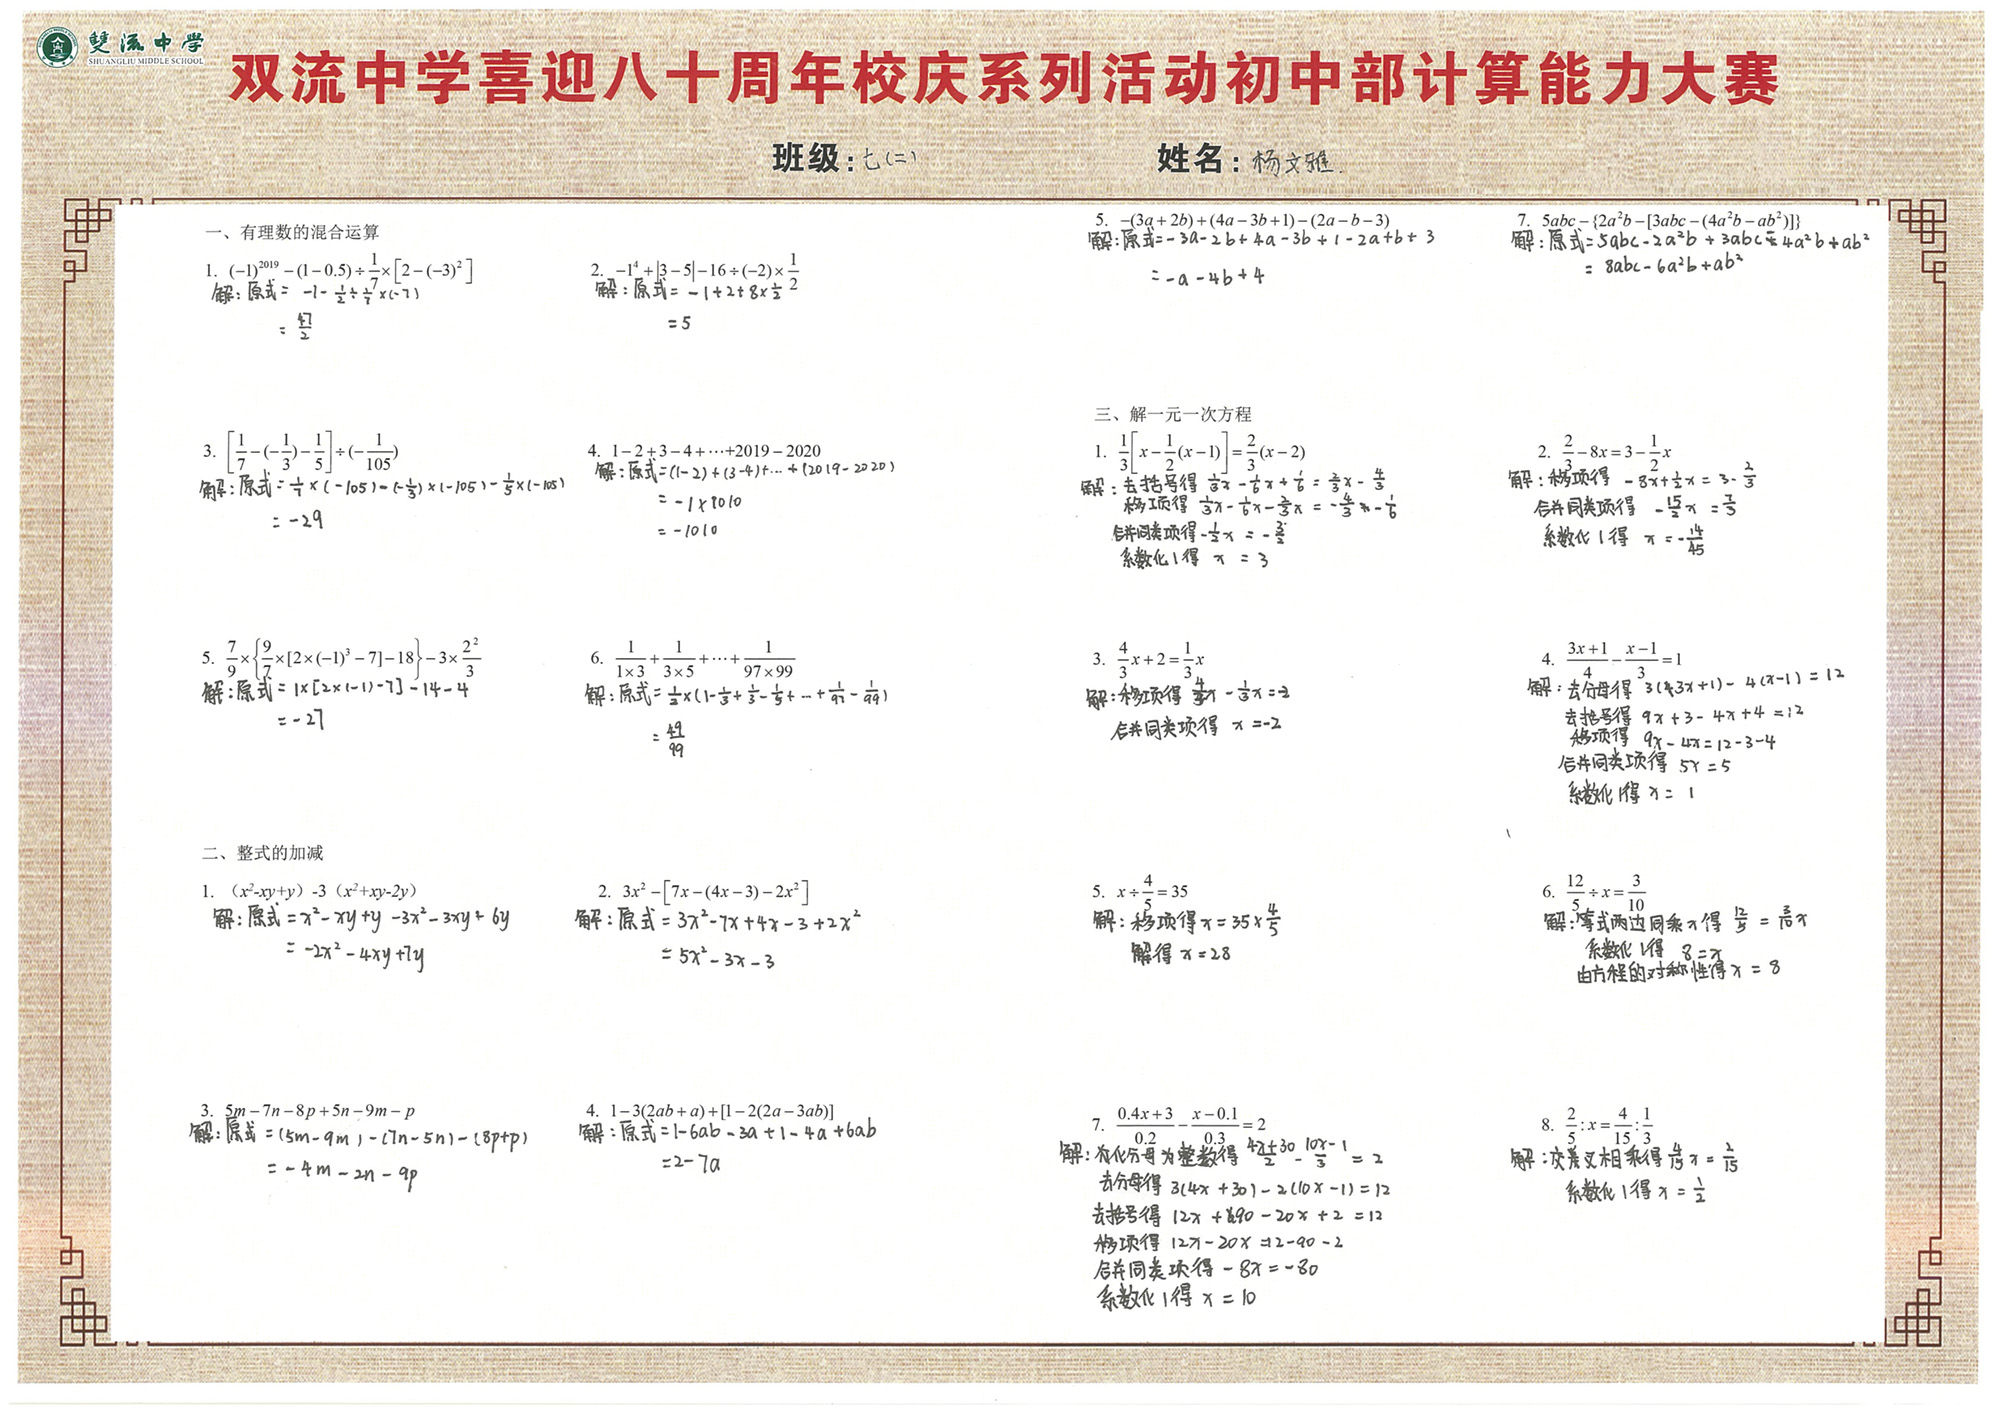 雙流中學
SHUANGLIU MIDDLE SCHOOL
双流中学喜迎八十周年校庆系列活动初中部计算能力大赛
班级：七(二) 姓名：杨文雅
一、有理数的混合运算
1. (−1)^2019 − (1−0.5) ÷ 1/7 × [2−(−3)^2]
解：原式 = −1 − 1/2 ÷ 1/7 × (−7)
= 47/2
2. −1^4 + |3−5| − 16 ÷ (−2) × 1/2
解：原式 = −1+2+8×1/2
= 5
3. [1/7 − (−1/3) − 1/5] ÷ (−1/105)
解：原式 = 1/7 × (−105) − (−1/3) × (−105) − 1/5 × (−105)
= −29
4. 1−2+3−4+⋯+2019−2020
解：原式 = (1−2)+(3−4)+⋯+(2019−2020)
= −1×1010
= −1010
5. 7/9 × {9/7 × [2×(−1)^3 − 7] − 18} − 3 × 2^2/3
解：原式 = 1×[2×(−1)−7]−14−4
= −27
6. 1/(1×3) + 1/(3×5) + ⋯ + 1/(97×99)
解：原式 = 1/2 × (1−1/3+1/3−1/5+⋯+1/97−1/99)
= 49/99
二、整式的加减
1. （x²-xy+y）-3（x²+xy-2y）
解：原式 = x²−xy+y−3x²−3xy+6y
= −2x²−4xy+7y
2. 3x² − [7x−(4x−3)−2x²]
解：原式 = 3x²−7x+4x−3+2x²
= 5x²−3x−3
3. 5m−7n−8p+5n−9m−p
解：原式 = (5m−9m)−(7n−5n)−(8p+p)
= −4m−2n−9p
4. 1−3(2ab+a)+[1−2(2a−3ab)]
解：原式 = 1−6ab−3a+1−4a+6ab
= 2−7a
5. −(3a+2b)+(4a−3b+1)−(2a−b−3)
解：原式 = −3a−2b+4a−3b+1−2a+b+3
= −a−4b+4
7. 5abc−{2a²b−[3abc−(4a²b−ab²)]}
解：原式 = 5abc−2a²b+3abc−4a²b+ab²
= 8abc−6a²b+ab²
三、解一元一次方程
1. 1/3[x−1/2(x−1)] = 2/3(x−2)
解：去括号得 1/3x−1/6x+1/6 = 2/3x−4/3
移项得 1/3x−1/6x−2/3x = −4/3−1/6
合并同类项得 −1/2x = −3/2
系数化1得 x = 3
2. 2/3−8x=3−1/2x
解：移项得 −8x+1/2x = 3−2/3
合并同类项得 −15/2x = 7/3
系数化1得 x = −14/45
3. 4/3x+2=1/3x
解：移项得 4/3x−1/3x=−2
合并同类项得 x=−2
4. (3x+1)/4 − (x−1)/3 = 1
解：去分母得 3(3x+1)−4(x−1)=12
去括号得 9x+3−4x+4=12
移项得 9x−4x=12−3−4
合并同类项得 5x=5
系数化1得 x=1
5. x÷4/5=35
解：移项得 x=35×4/5
解得 x=28
6. 12/5÷x=3/10
解：等式两边同乘x得 12/5 = 3/10x
系数化1得 8=x
由方程的对称性得 x=8
7. (0.4x+3)/0.2 − (x−0.1)/0.3 = 2
解：化分母为整数得 (4x+30)/2 − (10x−1)/3 = 2
去分母得 3(4x+30)−2(10x−1)=12
去括号得 12x+90−20x+2=12
移项得 12x−20x=12−90−2
合并同类项得 −8x=−80
系数化1得 x=10
8. 2/5:x=4/15:1/3
解：交叉相乘得 4/15x=2/15
系数化1得 x=1/2